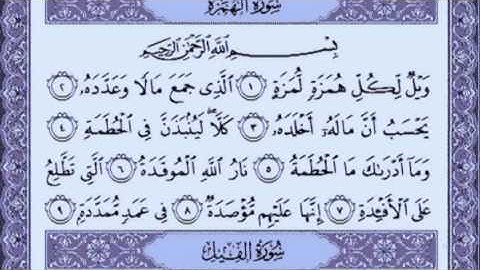 سُورَةُ الهُمَزَةِ
بِسْمِ اللَّهِ الرَّحْمَٰنِ الرَّحِيمِ
وَيْلٌ لِّكُلِّ هُمَزَةٍ لُّمَزَةٍ ١ الَّذِى جَمَعَ مَالًا وَعَدَّدَهُۥ ٢
يَحْسَبُ أَنَّ مَالَهُۥٓ أَخْلَدَهُۥ ٣ كَلَّا ۖ لَيُنۢبَذَنَّ فِى الْحُطَمَةِ ٤
وَمَآ أَدْرَىٰكَ مَا الْحُطَمَةُ ٥ نَارُ اللَّهِ الْمُوقَدَةُ ٦ الَّتِى تَطَّلِعُ
عَلَى الْأَفْـِٔدَةِ ٧ إِنَّهَا عَلَيْهِم مُّؤْصَدَةٌ ٨ فِى عَمَدٍ مُّمَدَّدَةٍۭ ٩
سُورَةُ الفِيلِ